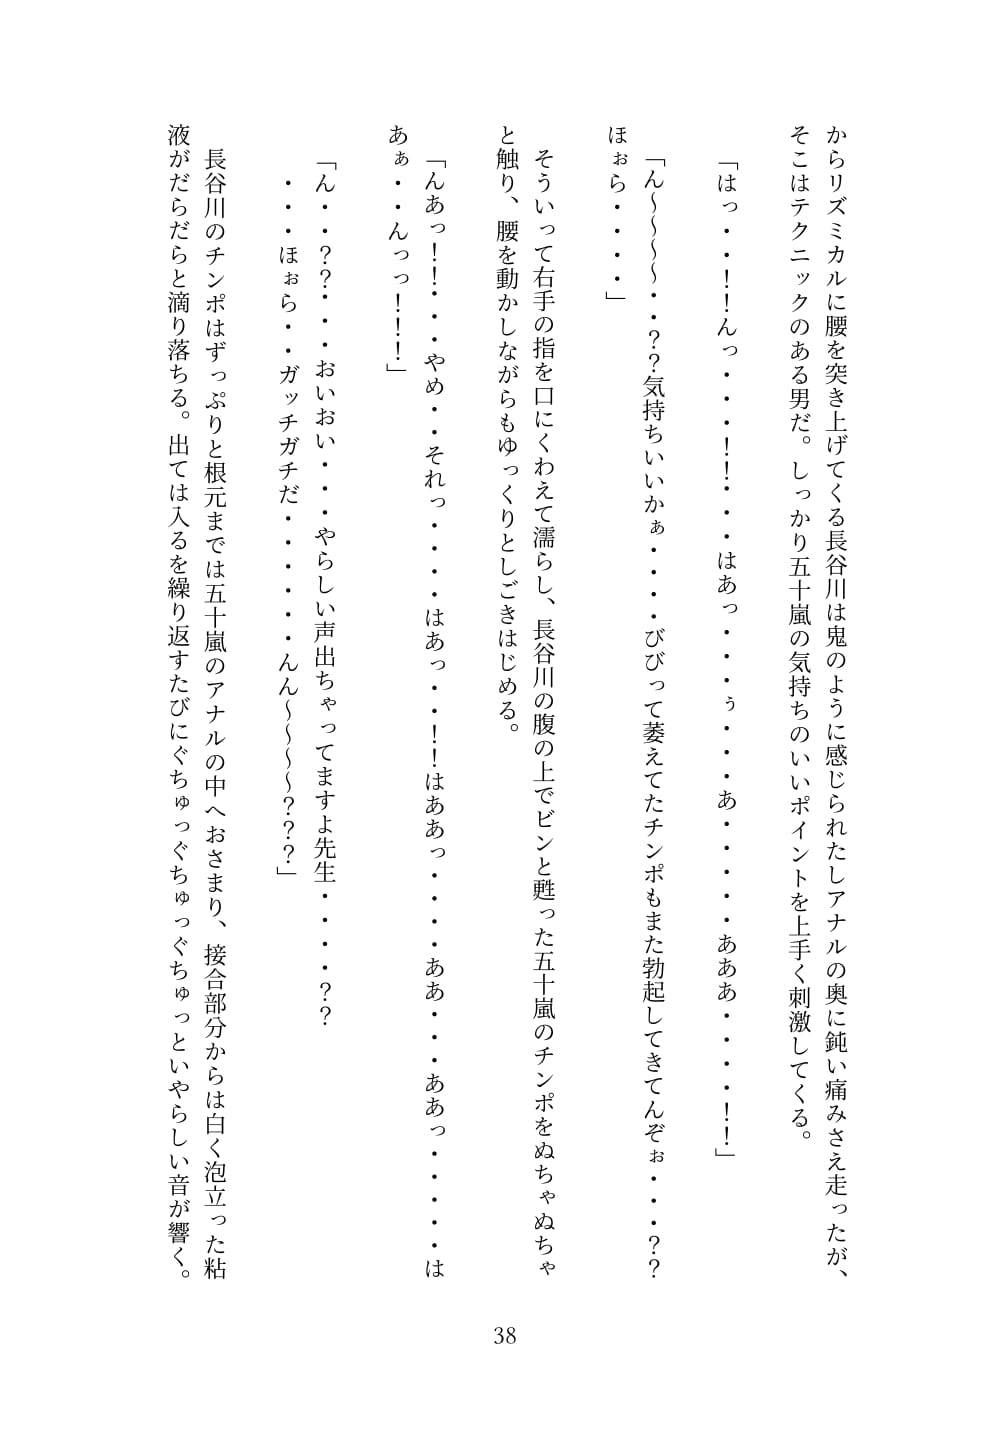 からリズミカルに腰を突き上げてくる長谷川は鬼のように感じられたしアナルの奥に鈍い痛みさえ走ったが、
そこはテクニックのある男だ。しっかり五十嵐の気持ちのいいポイントを上手く刺激してくる。
「はっ・・！！んっ・・・！！・・・はあっ・・・ぅ・・・あ・・・・・あああ・・・・！！」
「ん～～～～・・？？気持ちいいかぁ・・・・びびって萎えてたチンポもまた勃起してきてんぞぉ・・・？？
ほぉら・・・・」
そういって右手の指を口にくわえて濡らし、長谷川の腹の上でビンと甦った五十嵐のチンポをぬちゃぬちゃ
と触り、腰を動かしながらもゆっくりとしごきはじめる。
「んあっ！！・・・やめ・・それっ・・・・はあっ・・！！はああっ・・・・ああ・・・ああっ・・・・・は
あぁ・・んっっ！！！」
「ん・・？？・・・おいおい・・・やらしい声出ちゃってますよ先生・・・・？？
・・・ほぉら・・ガッチガチだ・・・・・・んん～～～～？？？」
長谷川のチンポはずっぷりと根元までは五十嵐のアナルの中へおさまり、接合部分からは白く泡立った粘
液がだらだらと滴り落ちる。出ては入るを繰り返すたびにぐちゅっぐちゅっぐちゅっといやらしい音が響く。
38